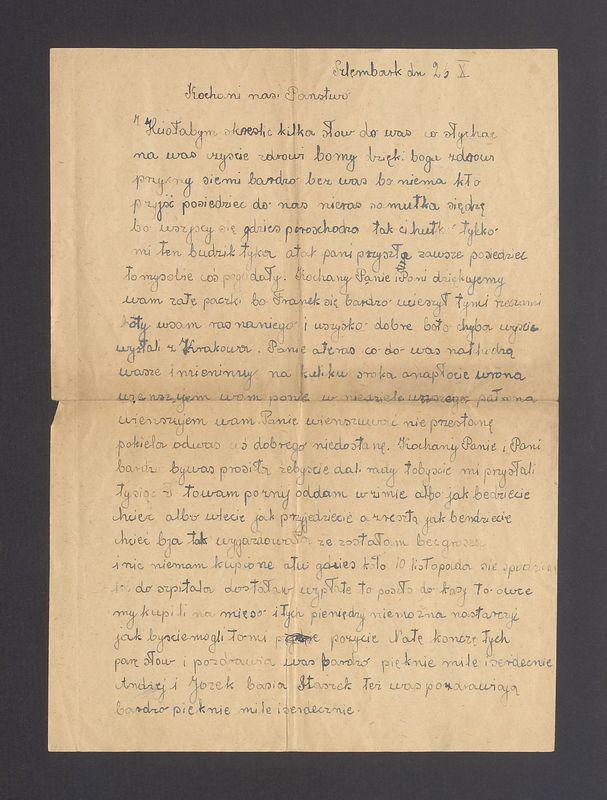 Szlembark dn 25 X
Kochani nasi Państwo
Hciałabym skreslic kilka słow do was co słychac
na was czyscie zdrowi bomy dzięki bogu zdrowi
przykny siemi bardzo bez was bo niema kto
przyjśc posiedziec do nas nieras samutka siędzę
bo wszyscy się gdzies porozchodzo tak cihutko tylko
mi ten budzik tyka atak pani przyszła zawsze posiedziec
tomysobie cos pogadały. Kochany Panie i Pani dziękujemy
wam zatę paczki bo Franek się bardzo ucieszył tymi rzeczami
boty wsam raz naniego i wszysko dobre boto chyba wyscie
wysłali z Krakowa. Panie ateras co do was nathodzą
wasze imieniny na kuliku sroka anapłocie wrona
wienszujem wam Panie w niedziele
wienszujem wam Panie wienszować nie przestonę
pokiela odwas coś dobrego niedostanę. Kochany Panie i Pani
bardzo bywas prosiła zebyscie dali rady tobyscie mi przysłali
tysiąc zł towam pozny oddam w zimie albo jak bedziecie
chciec albo wiecie jak przyjedziecie a reszta jak bendziecie
chciec bja tak wyjazdowała ze zostałam bez grosza
inic niemam kupione atu gdzies koło 10 listopada się
do szpitala dostałam wypłate to poszło do kasy to owce
my kupili na mięso itych pieniędzy niemozna nastarczyc
jak byscie mogli tomi pozycic Natę koncze tych
parę słow i pozdrawia was bardzo pięknie mile iserdecznie
Andzej i Jozek basia Staszek tez was pozdrawiają
bardzo pięknie mile iserdecznie.